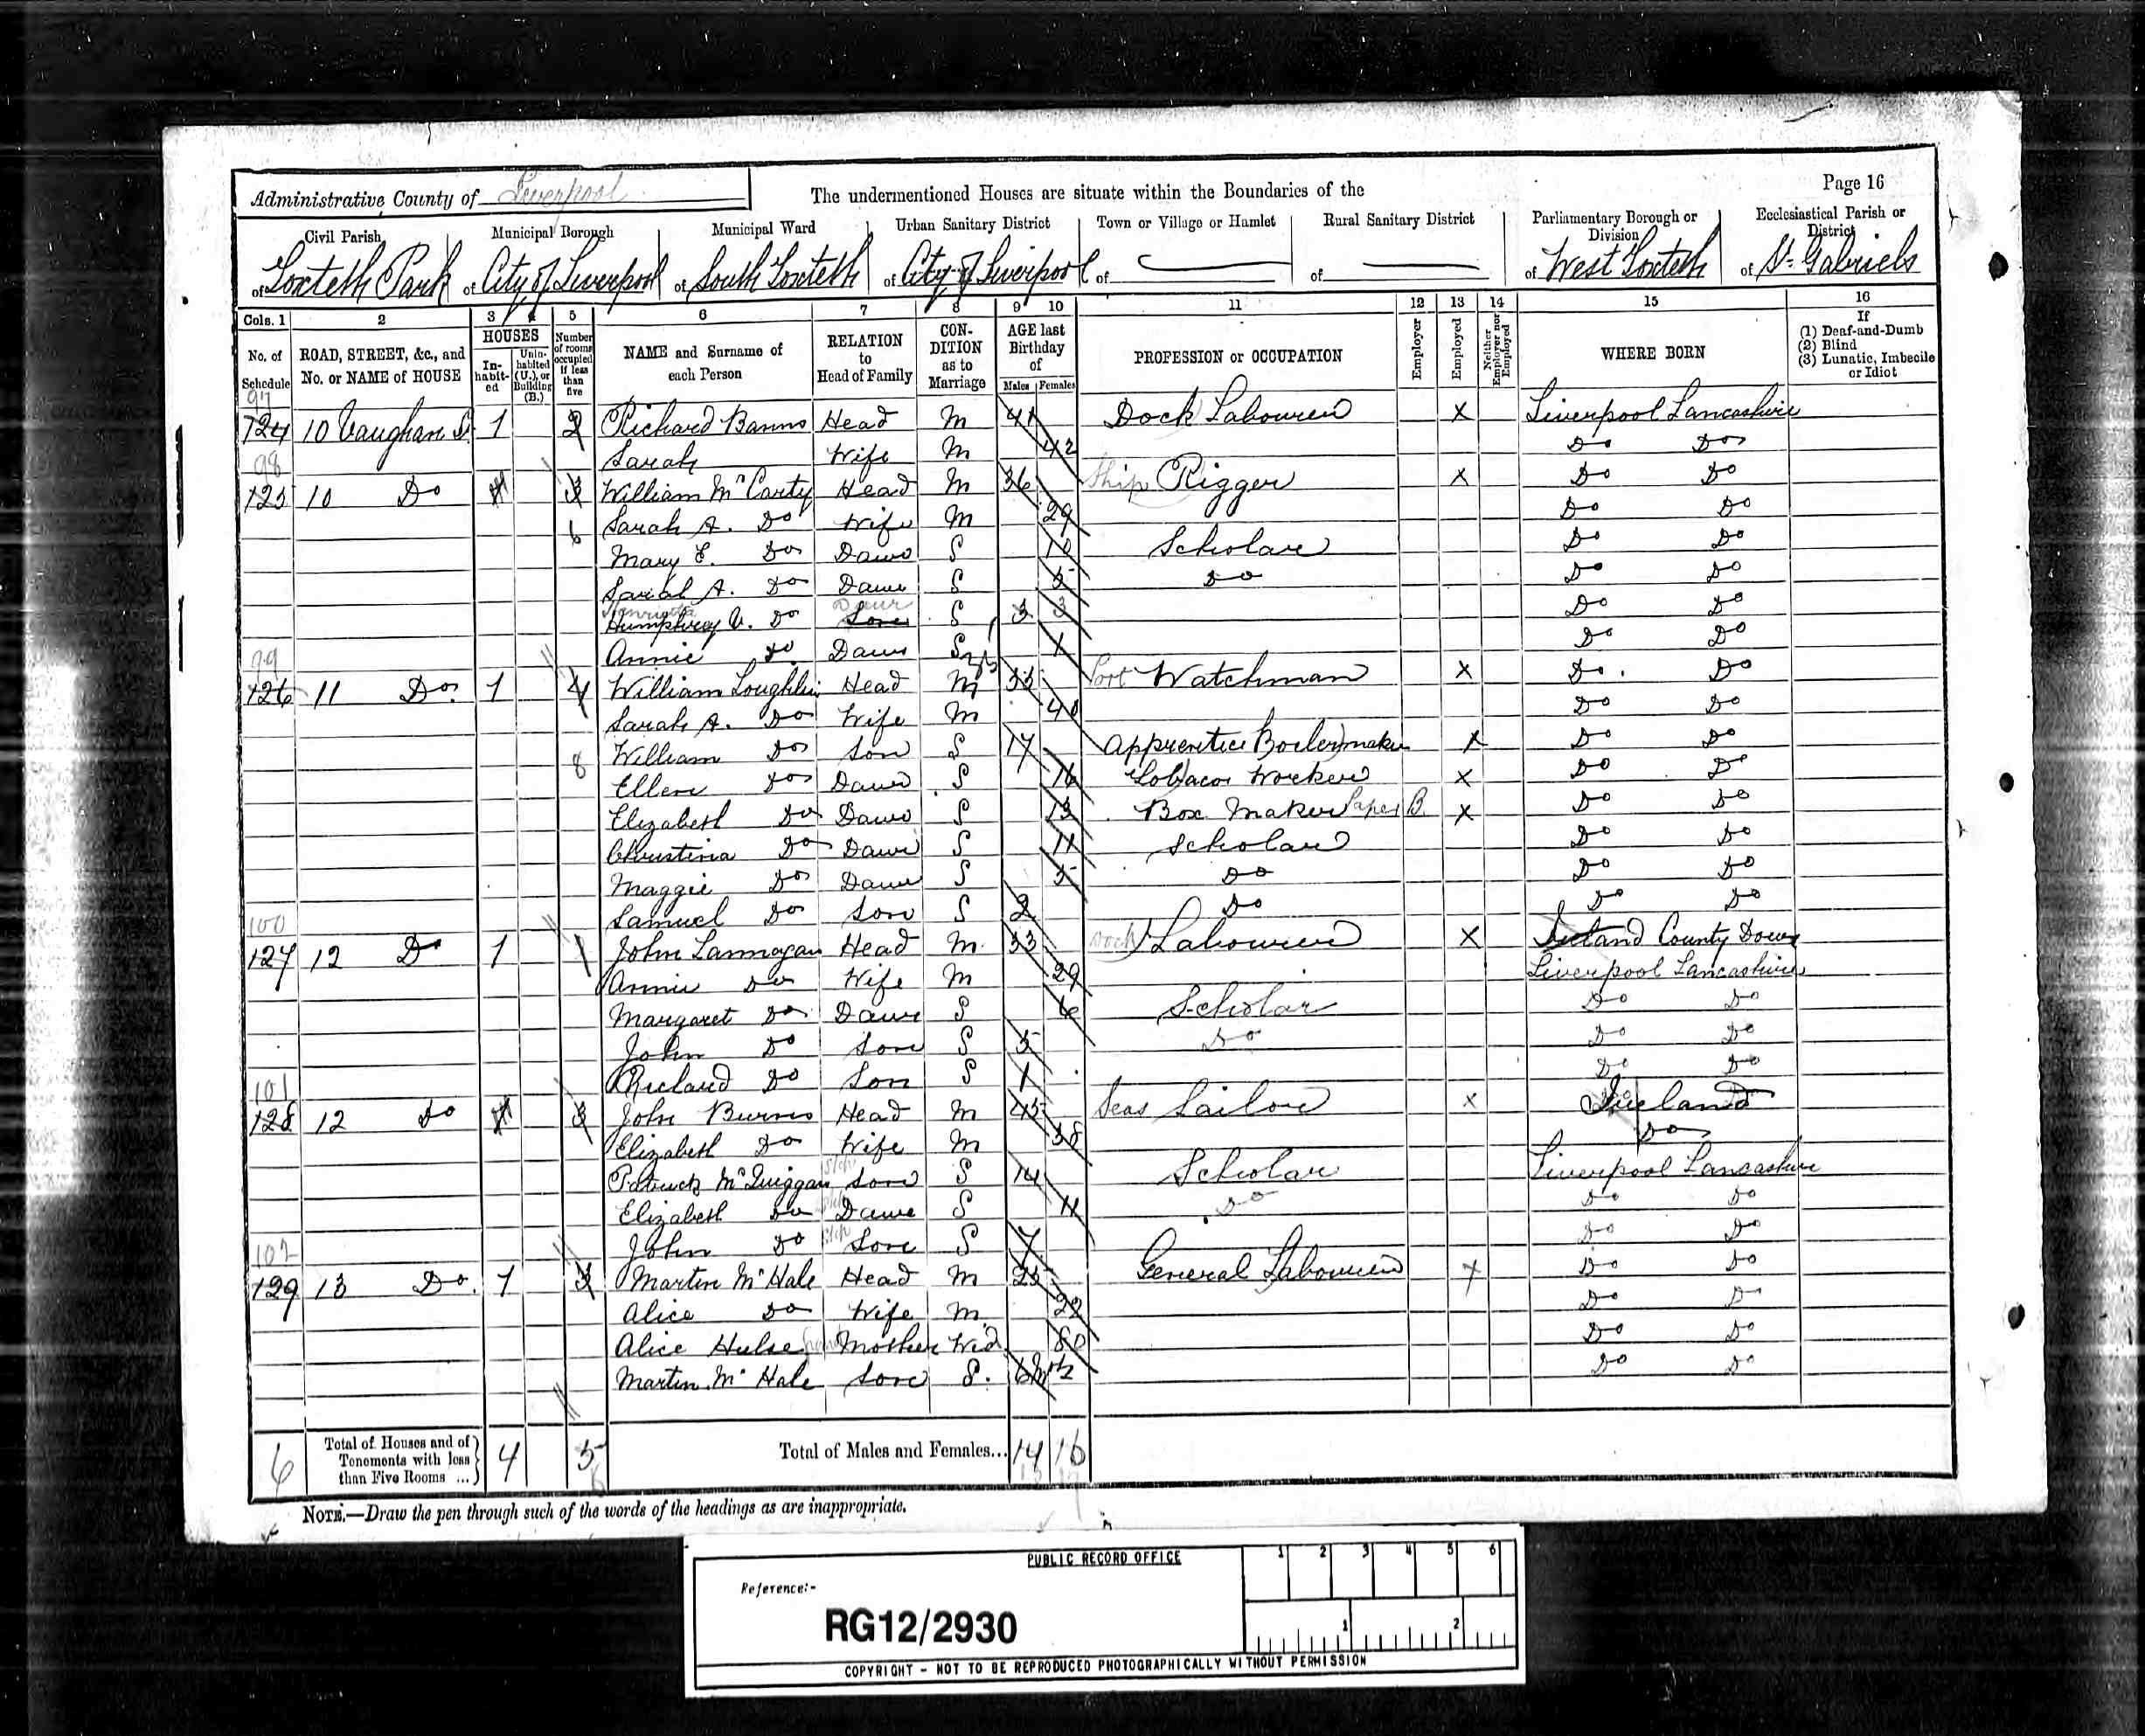 Administrative County of Liverpool
The undermentioned Houses are situate within the Boundaries of the
Page 16
Civil Parish
Municipal Borough
Municipal Ward
Urban Sanitary District
Town or Village or Hamlet
Rural Sanitary District
Parliamentary Borough or Division
Ecclesiastical Parish or District
of Toxteth Park
of City of Liverpool
of South Toxteth
of City of Liverpool
of
of
of West Toxteth
of St. Gabriels
Cols. 1 2 3 4 5 6 7 8 9 10 11 12 13 14 15 16
No. of Schedule
ROAD, STREET, &c., and No. or NAME of HOUSE
HOUSES
In-habit-ed
Unin-habited (U.), or Building (B.)
Number of rooms occupied if less than five
NAME and Surname of each Person
RELATION to Head of Family
CON-DITION as to Marriage
AGE last Birthday of
Males Females
PROFESSION or OCCUPATION
Employer
Employed
Neither Employer nor Employed
WHERE BORN
If
(1) Deaf-and-Dumb
(2) Blind
(3) Lunatic, Imbecile or Idiot
97
124 10 Vaughan St 1 2 Richard Banns Head M 41 Dock Labourer X Liverpool Lancashire
Sarah Wife M 42 Do Do
98
125 10 Do 3 William McCarty Head M 36 Ship Rigger X Do Do
Sarah A. Do Wife M 29 Do Do
6 Mary E. Do Daur S 10 Scholar Do Do
Sarah A. Do Daur S 5 Do Do Do
Henrietta Daur
Humphrey V. Do Son S 3 3 Do Do
Annie Do Daur S 1 Do Do
99
126 11 Do 1 4 William Loughlin Head M 53 Port Watchman X Do Do
Sarah A. Do Wife M 40 Do Do
William Do Son S 17 Apprentice Boilermaker X Do Do
8 Ellen Do Daur S 16 Tobacco Worker X Do Do
Elizabeth Do Daur S 13 Box Maker Paper B. X Do Do
Christina Do Daur S 11 Scholar Do Do
Maggie Do Daur S 5 Do Do Do
Samuel Do Son S 2 Do Do Do
100
127 12 Do 1 1 John Lannogan Head M 33 Dock Labourer X Ireland County Down
Annie Do Wife M 29 Liverpool Lancashire
Margaret Do Daur S 6 Scholar Do Do
John Do Son S 5 Do Do Do
Richard Do Son S 1 Do Do
101
128 12 Do 3 John Burns Head M 45 Seas Sailor X Ireland
Elizabeth Do Wife M 38 Do
Patrick McQuiggan Step Son S 14 Scholar Liverpool Lancashire
Elizabeth Do Step Daur S 11 Do Do Do
John Do Step Son S 7 Do Do
102
129 13 Do 1 3 Martin McHale Head M 23 General Labourer X Do Do
Alice Do Wife M 22 Do Do
Alice Hulse Grand Mother Wid 80 Do Do
Martin McHale Son S. 6 Mths Do Do
6
Total of Houses and of Tenements with less than Five Rooms ... 4 5
Total of Males and Females... 14 16
NOTE.—Draw the pen through such of the words of the headings as are inappropriate.
PUBLIC RECORD OFFICE
1 2 3 4 5 6
Reference:-
RG12/2930
1 2
COPYRIGHT - NOT TO BE REPRODUCED PHOTOGRAPHICALLY WITHOUT PERMISSION